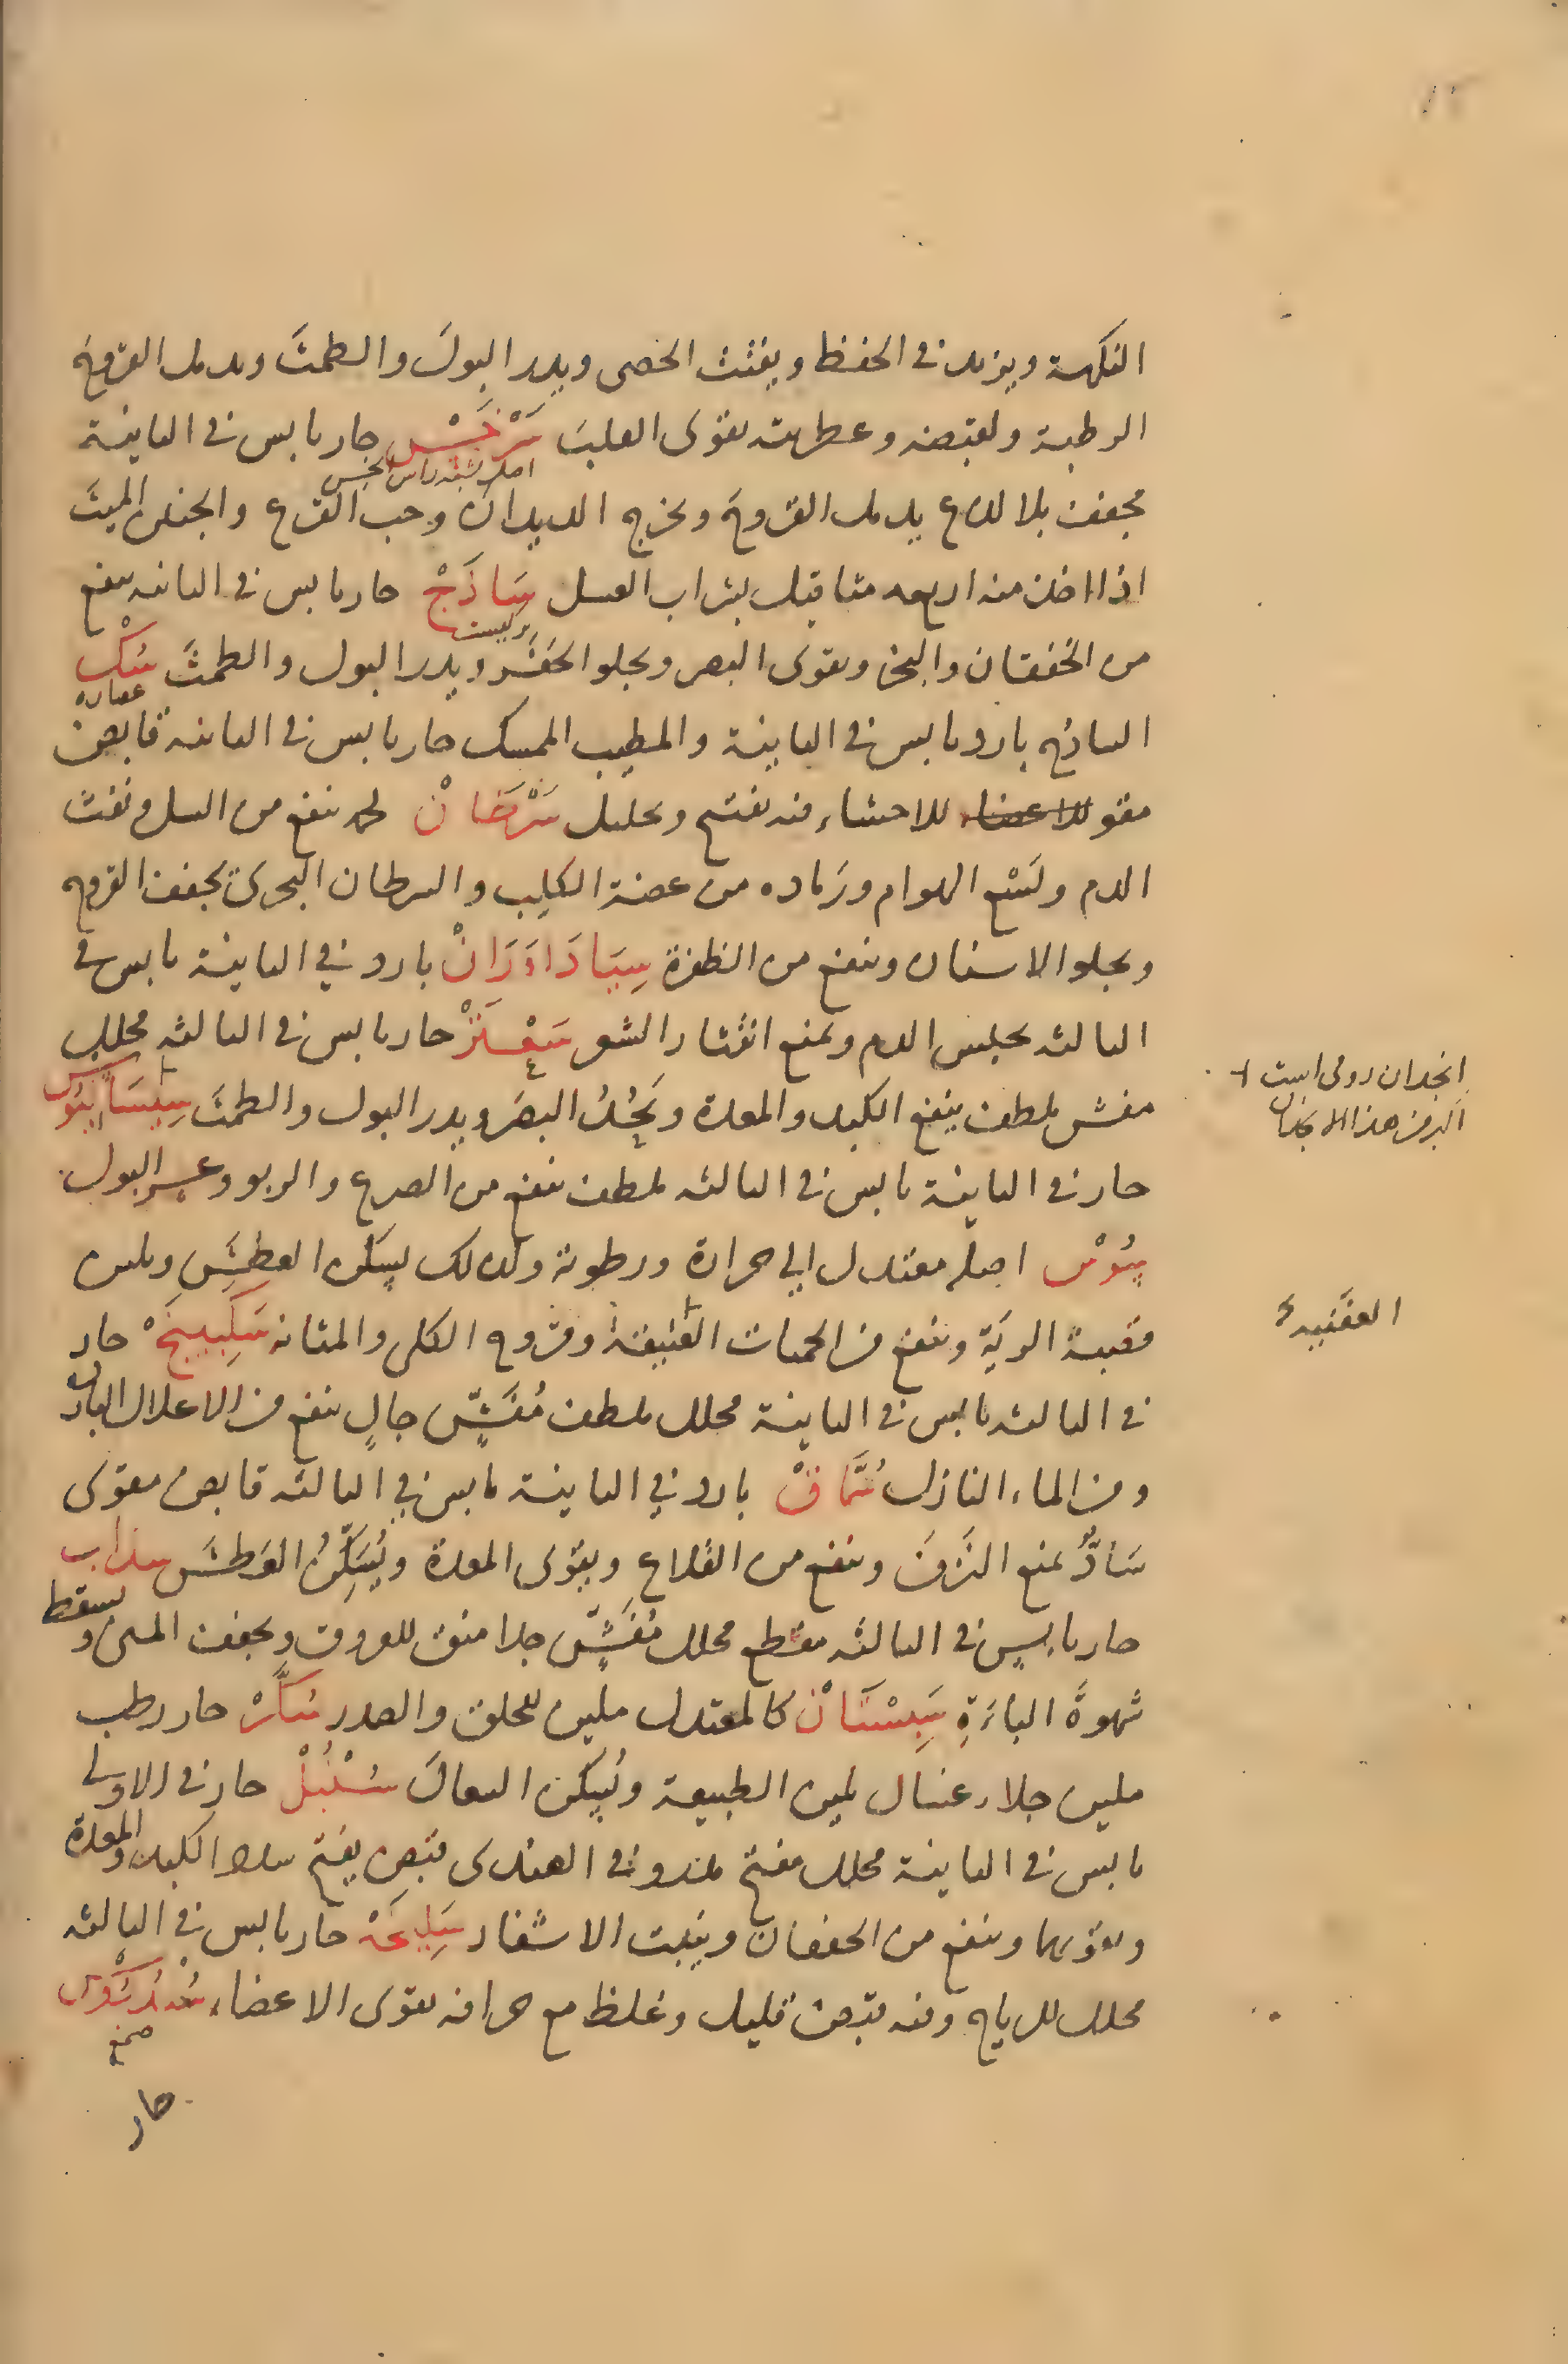 النكهة ويزيد في الحفظ ويفتت الحصى ويدر البولَ والطمثَ ويدمل القروحَ
الرطبة ولقبضه وعطريته يقوى القلبَ سَرْخَسْ حار يابس في الثانية
مجفف بلا لذع يدمل القروحَ ويخرج الديدان وحب القرع والجنين الميتَ
اذا اخذ منه اربعه مثاقيل بشراب العسل سَاذَجْ حار يابس في الثانيه ينفع
من الخفقان والبخر ويقوى البصر ويجلو الحَفَرَ ويدر البول والطمثَ سُكْ
الساذج بارد يابس في الثانية والمطيب الممسك حار يابس في الثانيه قابض
مقو للاعضاء للاحشاء فيه تفتيح وتحليل سَرَطَانْ لحمه ينفع من السل ونفث
الدم ولَسْع الهوام ورَماده من عضة الكَلِب والسرطان البحرى يجفف القروح
ويجلو الاسنان وينفع من الظفرة سِيَادَاوَرَانْ بارد في الثانية يابس في
الثالثه يحبس الدم ويمنع انتثار الشعر سَعْتَرْ حار يابس في الثالثه محلل
مفش ملطف ينفع الكبد والمعدة ويَحُدُّ البصَر ويدر البول والطمثَ سِيْسَالِيُوس
حار في الثانية يابس في الثالثه ملطف ينفع من الصرع والربو وعسر البول
سُوْس اصله معتدل الي حرارة ورطوبة ولذلك يسكن العطشَ ويلين
قصبة الريَة وينفع من الحميات العتيقة وقروح الكلى والمثانه سَكِبِينَجْ حار
في الثالثه يابس في الثانية محلل ملطف مُفَشٍّ جالٍ ينفع من الاعلال الباردة
ومن الماء النازل سُمَّاقْ بارد في الثانية يابس في الثالثه قابض مقوى
سَادٌّ يمنع النَزفَ وينفع من القلاع ويقوى المعدة ويُسَكِّنُ العَطشَ سذاب
حار يابس في الثالثه مقطع محلل مُفَشٍّ جدا منق للعروق ويجفف المنى ويسقط
شهوةَ الباءَةِ سَبِسْتَانْ كالمعتدل ملين للحلق والصدر سُكَّرْ حار رطب
ملين جلاء غسال يلين الطبيعة ويُسكن السعالَ سُنْبُلْ حار في الاولى
يابس في الثانية محلل مفتح وفي الهندى قبض يفتح سدد الكبد والمعدة
ويقويهما وينفع من الخفقان وينبت الاشفار سَلِيخَهْ حار يابس في الثالثه
محلل للرياح وفيه قبض قليل وغلظ مع حرافه يقوى الاعضاء سَنْدَرُوس
صمغ
حار
عصاره
انجدان رومى است
اكبر من هذا الانجدان